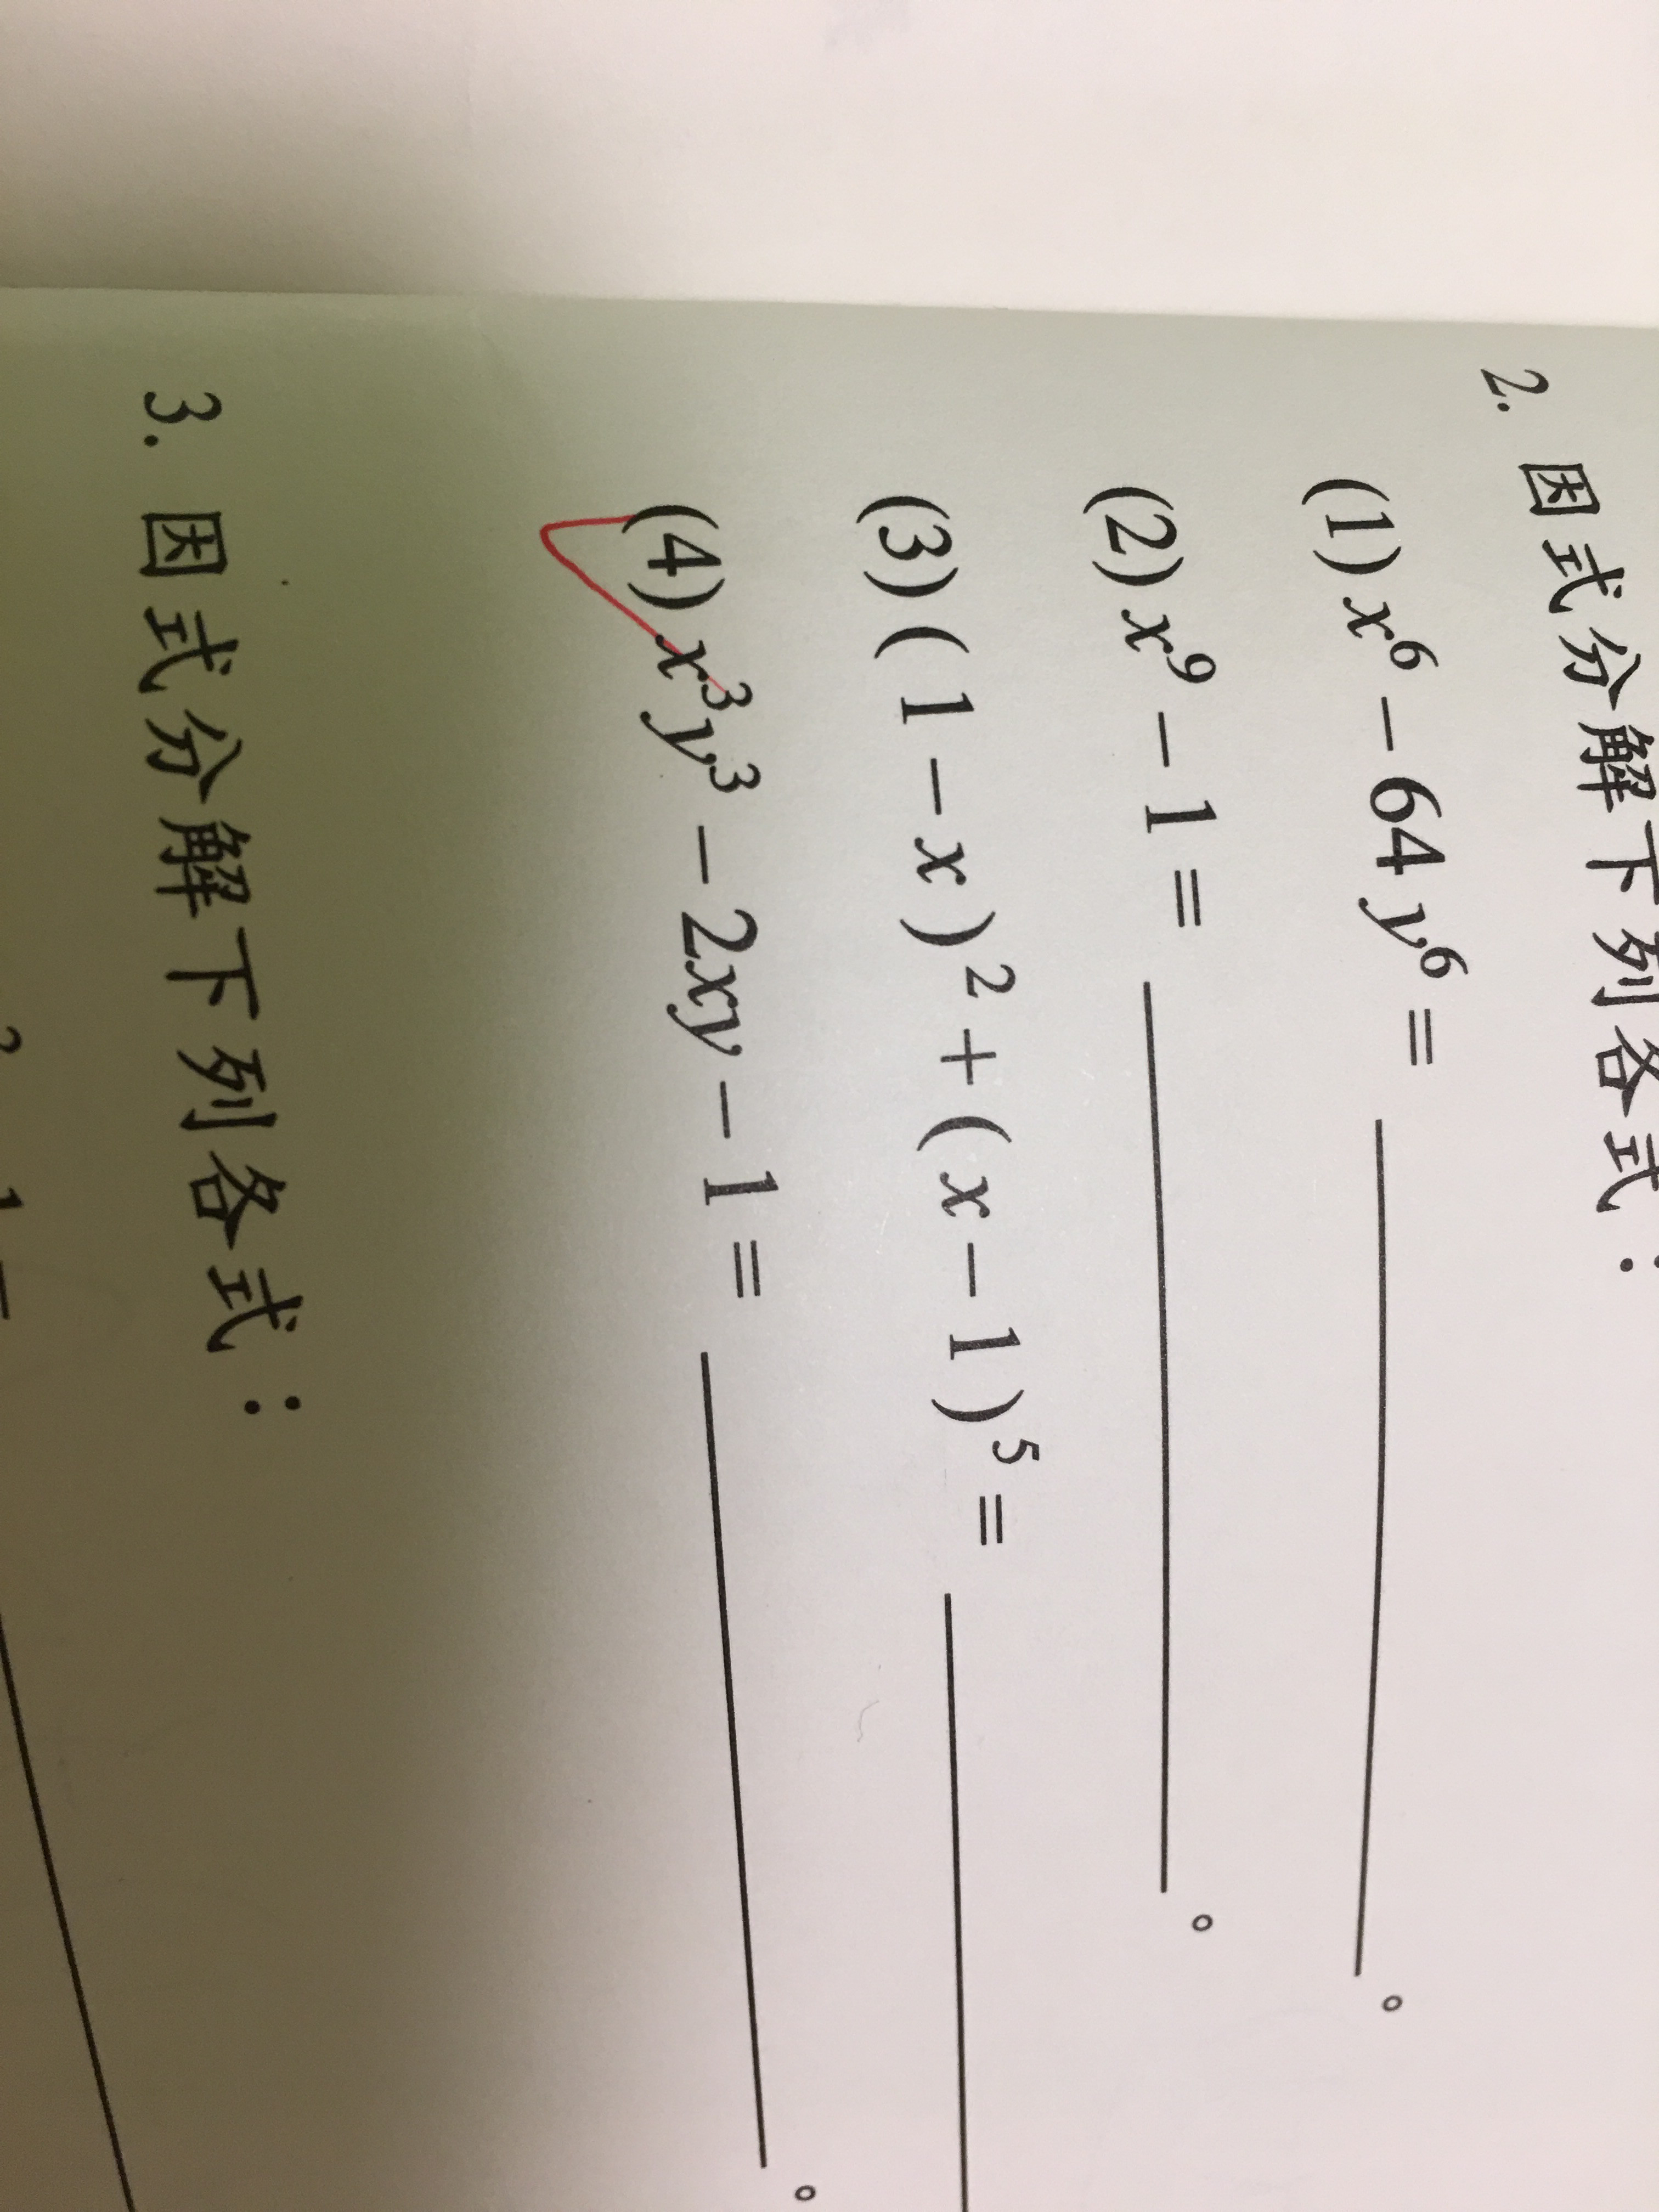 2. 因式分解下列各式：
(1) x⁶ − 64y⁶ = ________。
(2) x⁹ − 1 = ________。
(3) (1 − x)² + (x − 1)⁵ = ________
(4) x³y³ − 2xy − 1 = ________。
3. 因式分解下列各式：